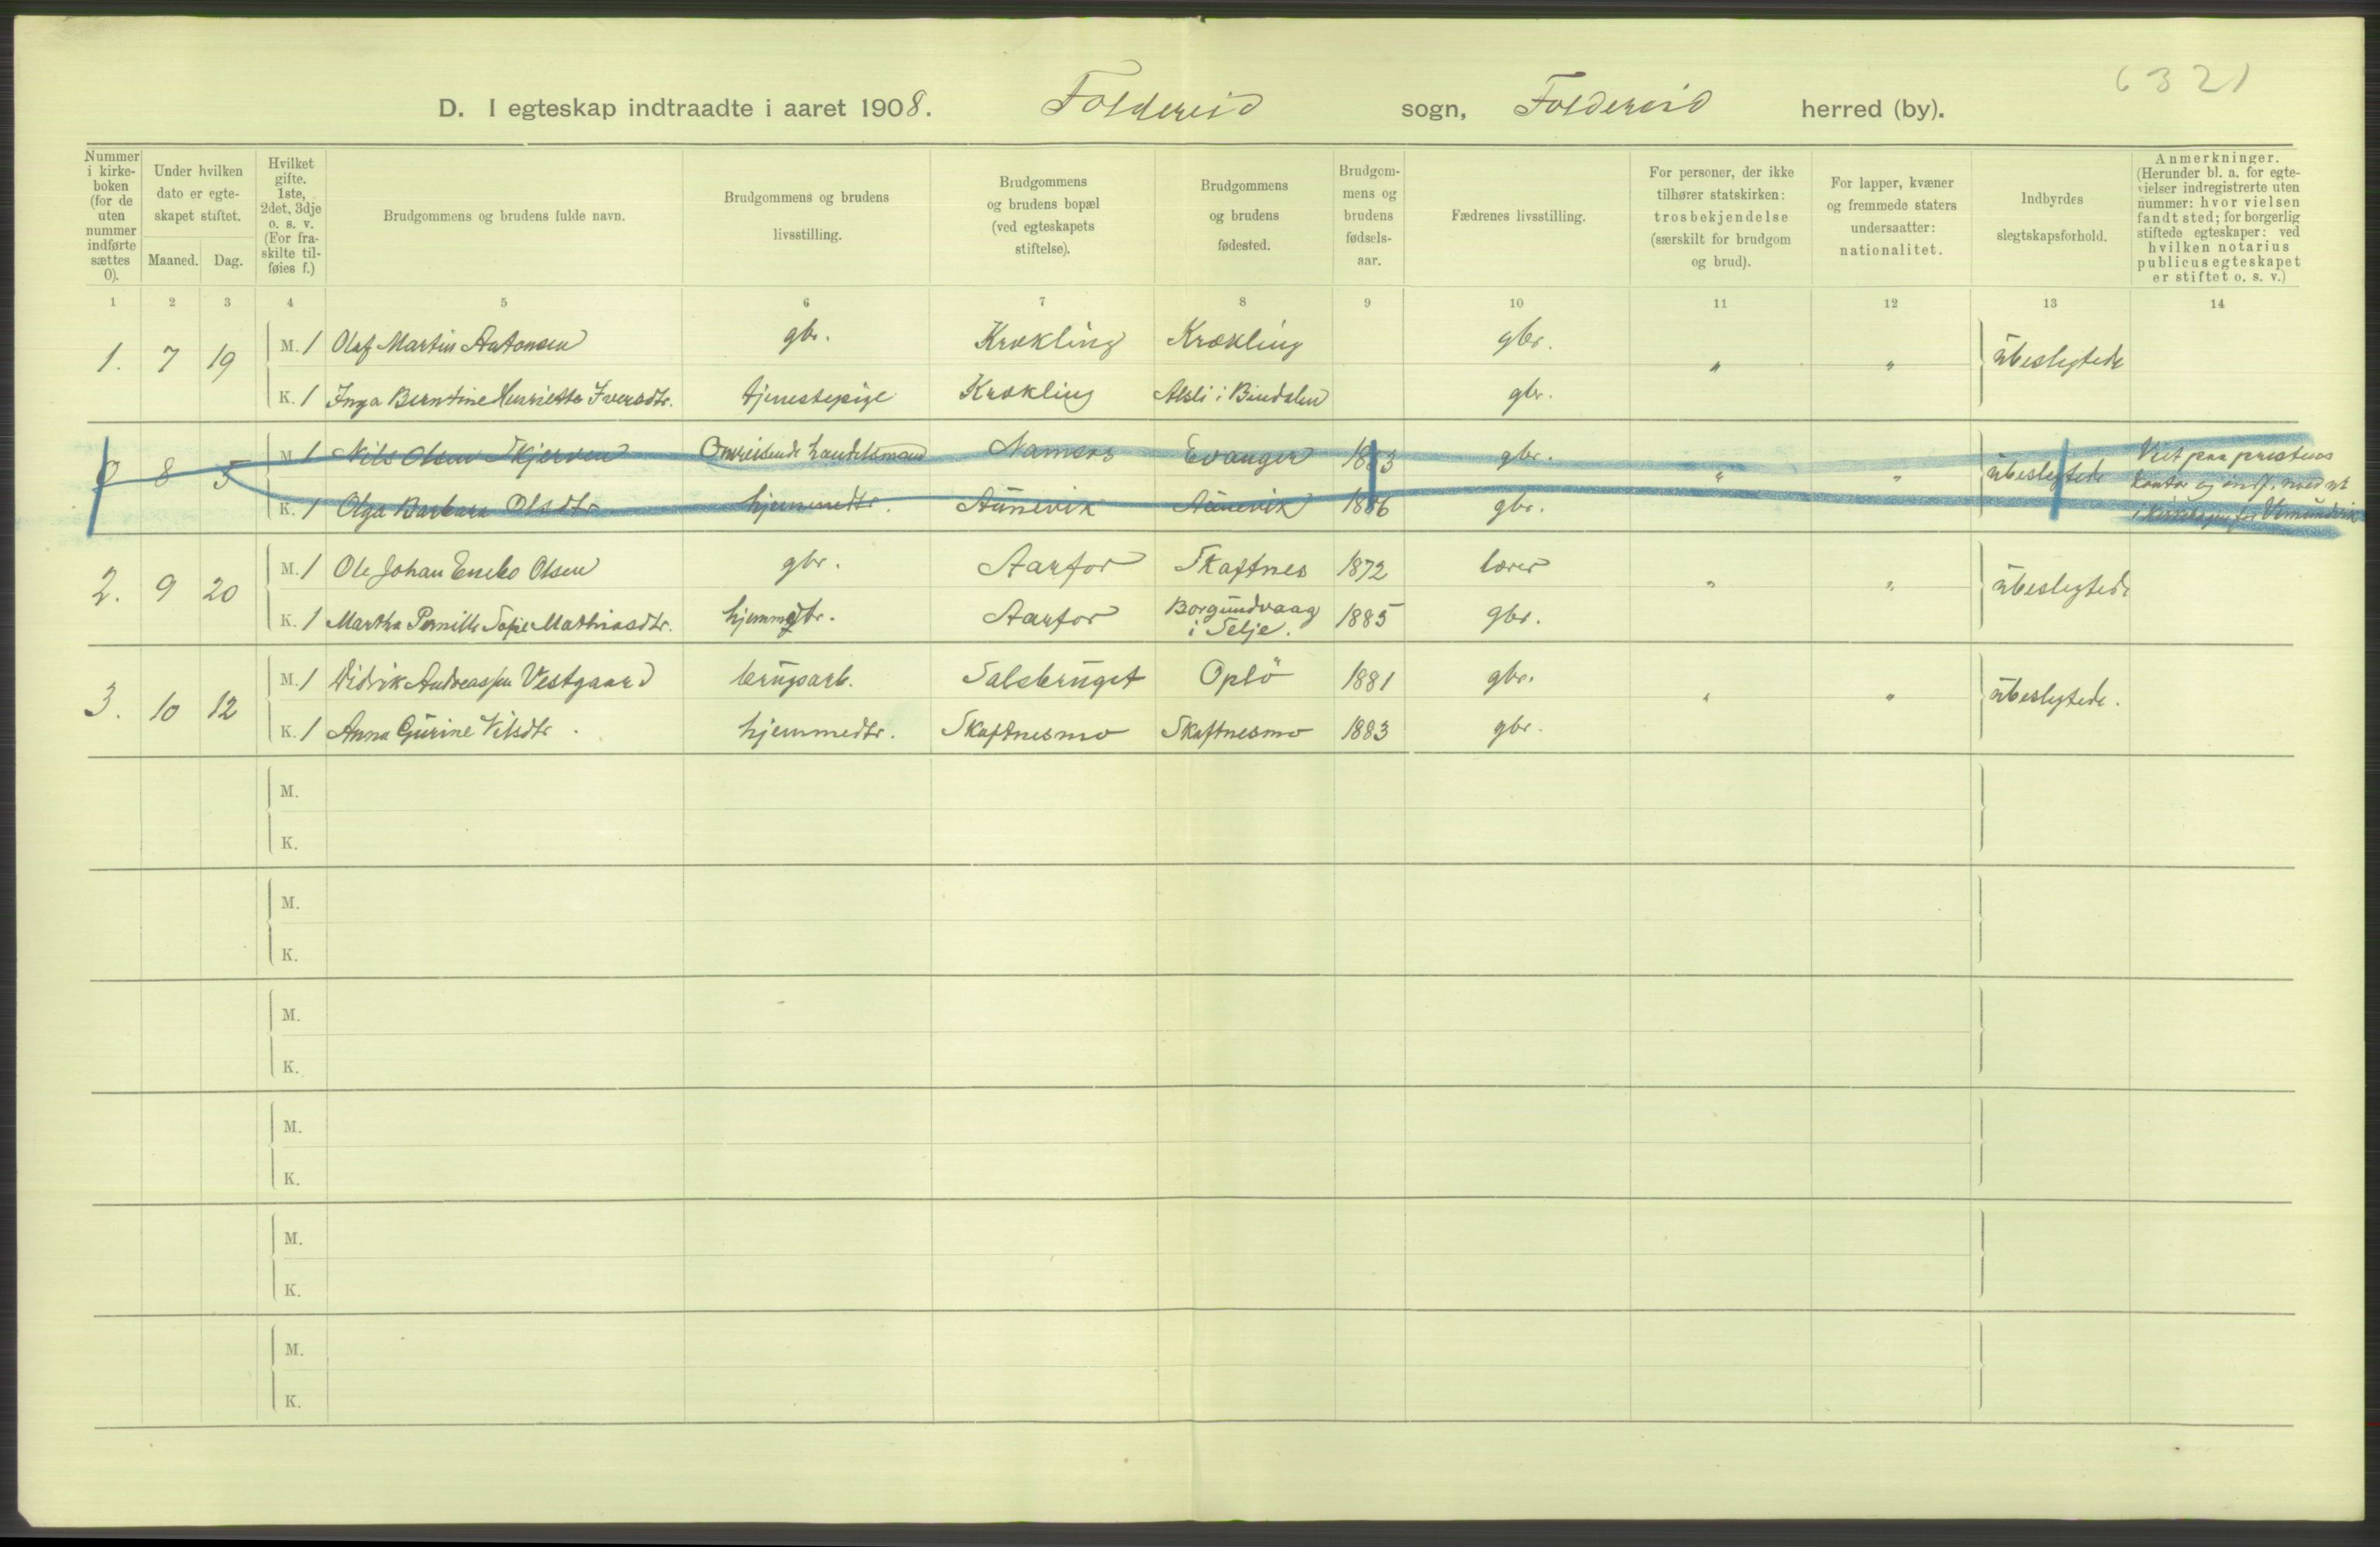 6321
D. I egteskap indtraadte i aaret 1908. Foldereid sogn, Foldereid herred (by).
Nummer i kirke-boken (for de uten nummer indførte sættes 0).
Under hvilken dato er egte-skapet stiftet.
Maaned. Dag.
Hvilket gifte. 1ste, 2det, 3dje o. s. v. (For fra-skilte til-føies f.)
Brudgommens og brudens fulde navn.
Brudgommens og brudens livsstilling.
Brudgommens og brudens bopæl (ved egteskapets stiftelse).
Brudgommens og brudens fødested.
Brudgom-mens og brudens fødsels-aar.
Fædrenes livsstilling.
For personer, der ikke tilhører statskirken: trosbekjendelse (særskilt for brudgom og brud).
For lapper, kvæner og fremmede staters undersaatter: nationalitet.
Indbyrdes slegtskapsforhold.
Anmerkninger. (Herunder bl. a. for egte-vielser indregistrerte uten nummer: hvor vielsen fandt sted; for borgerlig stiftede egteskaper: ved hvilken notarius publicus egteskapet er stiftet o. s. v.)
1 2 3 4 5 6 7 8 9 10 11 12 13 14
1. 7 19 M. 1 Olaf Martin Antonsen gbr. Krækling Krækling gbr. " " ubeslegtede
K. 1 Inga Berntine Henriette Iversdtr. tjenestepige Krækling Alsli i Bindalen gbr.
0 8 5 M. 1 Nils Olsen Skjerven Omreisende handelsmand Namsos Evanger 1883 gbr. " " ubeslegtede Viet paa prestens
K. 1 Olga Barbara Olsdtr hjemmedtr. Aunevik Aunevik 1886 gbr. kontor og indf. med nr
2. 9 20 M. 1 Ole Johan Enebo Olsen gbr. Aarfor Skaftnes 1872 lærer " " ubeslegtede
K. 1 Martha Pernille Sofie Mathiasdtr. hjemmedtr. Aarfor Borgundvaag i Selje. 1885 gbr.
3. 10 12 M. 1 Didrik Andreassen Vestgaard brugsarb. Salsbruget Oplö 1881 gbr. " " ubeslegtede.
K. 1 Anna Gurine Nilsdtr. hjemmedtr. Skaftnesmo Skaftnesmo 1883 gbr.
M.
K.
M.
K.
M.
K.
M.
K.
M.
K.
M.
K.